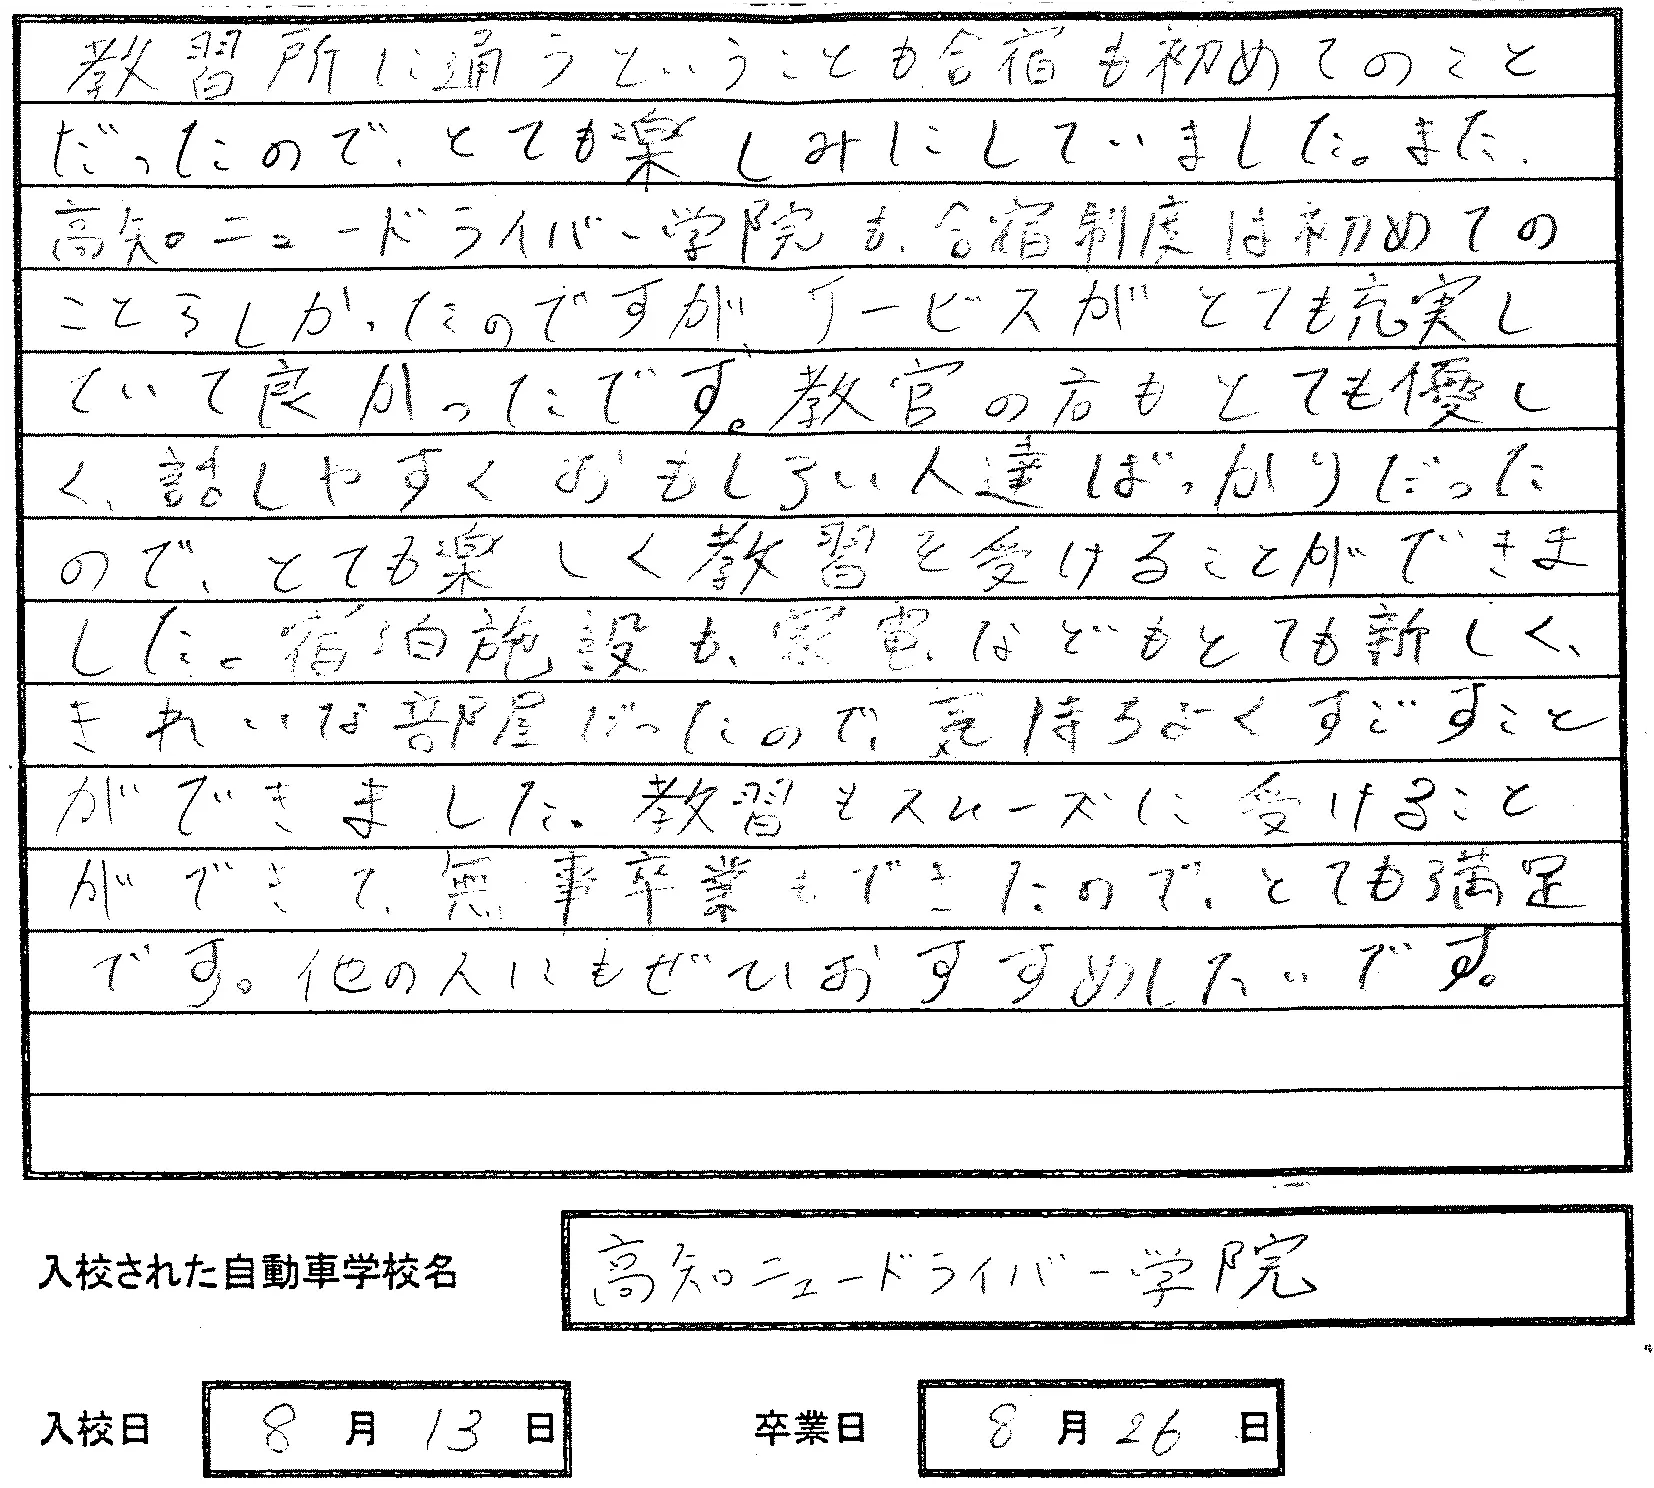 教習所に通うということも合宿も初めてのこと
だったので、とても楽しみにしていました。また、
高知ニュードライバー学院も、合宿制度は初めての
ことらしかったのですが、サービスがとても充実し
ていて良かったです。教官の方もとても優し
く、話しやすくおもしろい人達ばっかりだった
ので、とても楽しく教習を受けることができま
した。宿泊施設も、家電などもとても新しく、
きれいな部屋だったので、気持ちよくすごすこと
ができました。教習もスムーズに受けること
ができて、無事卒業もできたので、とても満足
です。他の人にもぜひおすすめしたいです。
入校された自動車学校名 高知ニュードライバー学院
入校日 8月13日 卒業日 8月26日